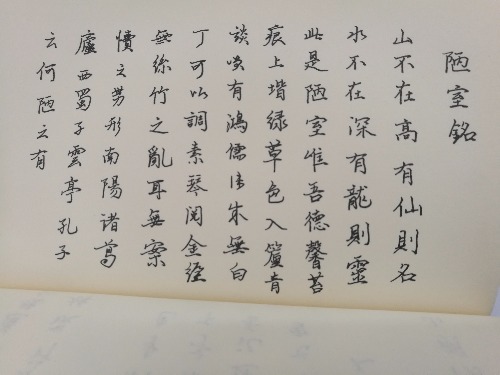 陋室銘
山不在高有仙則名
水不在深有龍則靈
此是陋室惟吾德馨苔
痕上堦绿草色入簾青
談笑有鴻儒往来無白
丁可以調素琴阅金經
無絲竹之亂耳無案
牘之劳形南陽诸葛
廬西蜀子雲亭孔子
云何陋之有